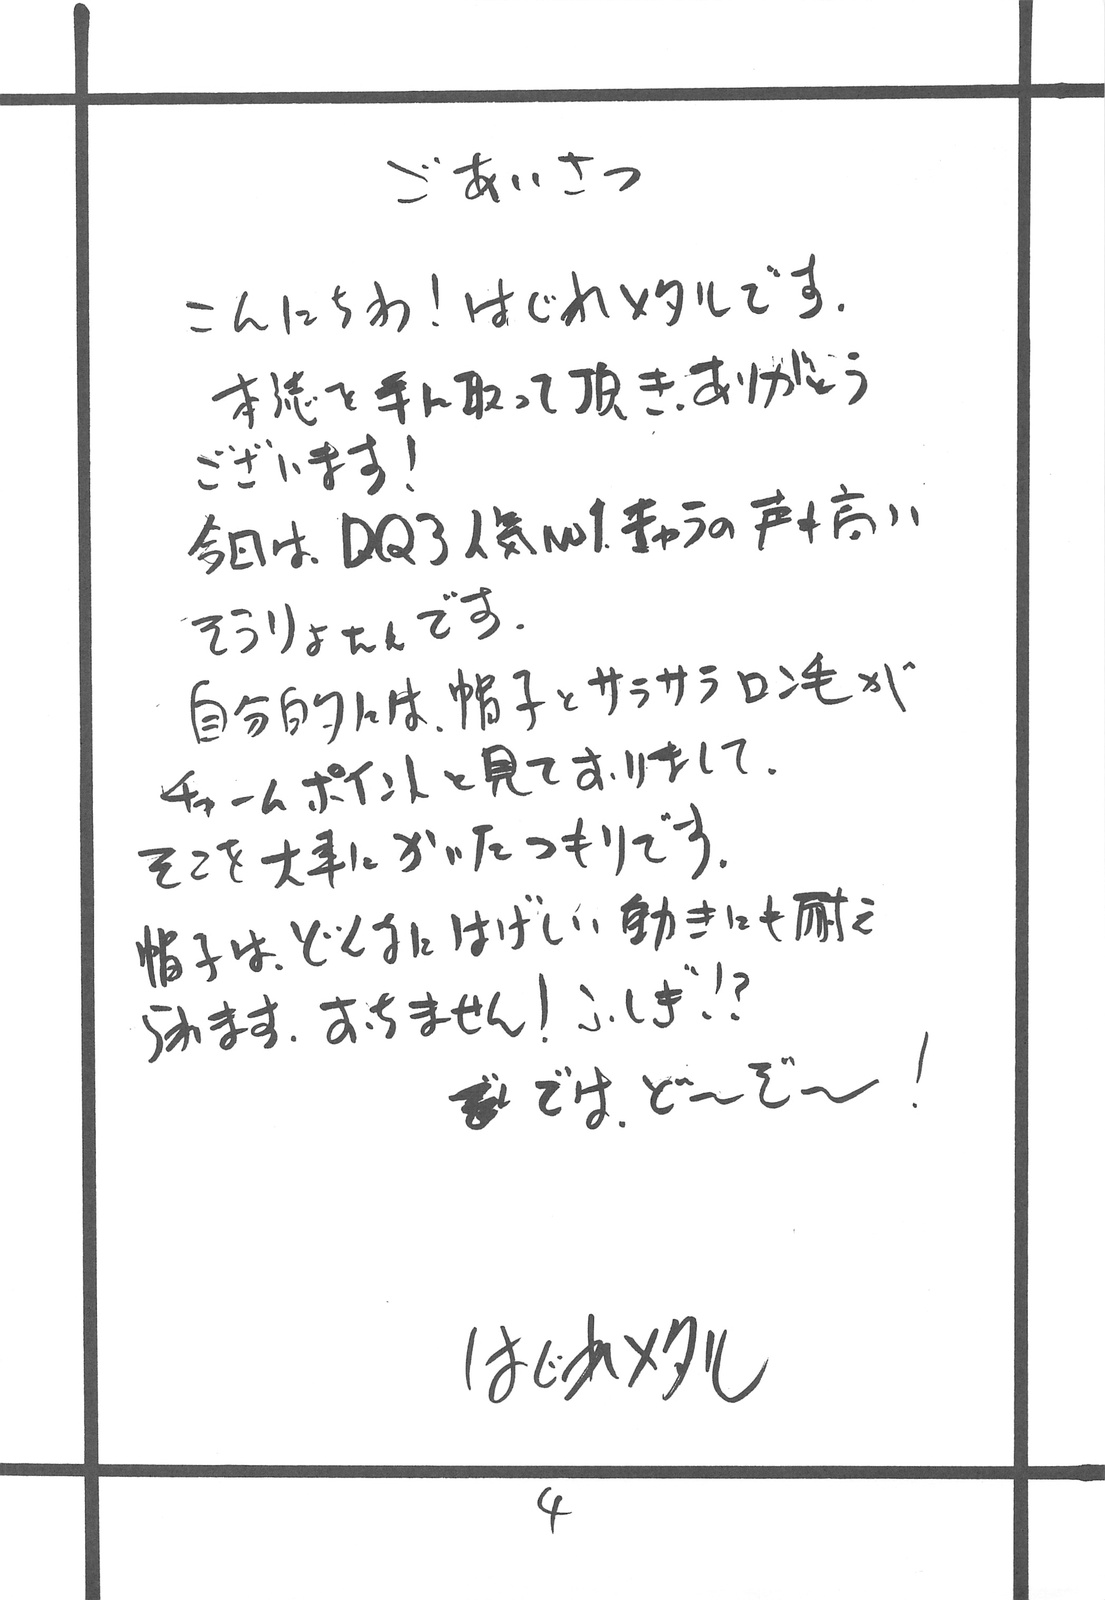 ごあいさつ
こんにちわ!はじれメタルです.
本誌を手に取って頂き、ありがとう
ございます!
今日は、DQ3人気No1.きゃうの声も高い
そうりょたんです.
自分的には、帽子とサラサラロン毛が
チャームポイントと見ておりまして.
そこを大事にかいたつもりです.
帽子は、どんなにはげしい動きにも耐え
られます.おちません!ふしぎ!?
では、ど〜ぞ〜!
はじれメタル
4